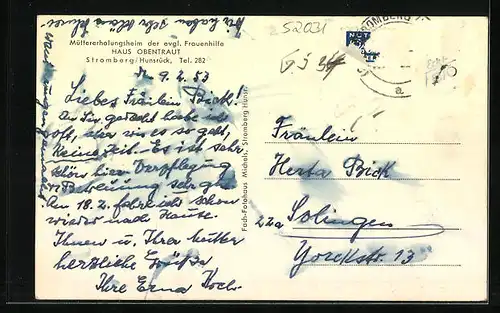 Müttererholungsheim der evgl. Frauenhilfe
HAUS OBENTRAUT
Stromberg/Hunsrück, Tel. 282
d. 9.2.53
Liebes Fräulein Bick!
An Sie gedacht habe ich
oft, aber wie es so geht,
keine Zeit. Es ist sehr
schön hier Verpflegung
u. Betreuung sehr gut
Am 18.2. fahre ich schon
wieder nach Hause.
Ihnen u. Ihrer Mutter
herzliche Grüße
Ihre Erna Koch
Wir haben sehr schönes
Foto-Fotohaus Michels, Stromberg Hunsr.
52031
STROMBERG
NOT
a
Fräulein
Herta Bick
22a Solingen
Yorckstr. 13